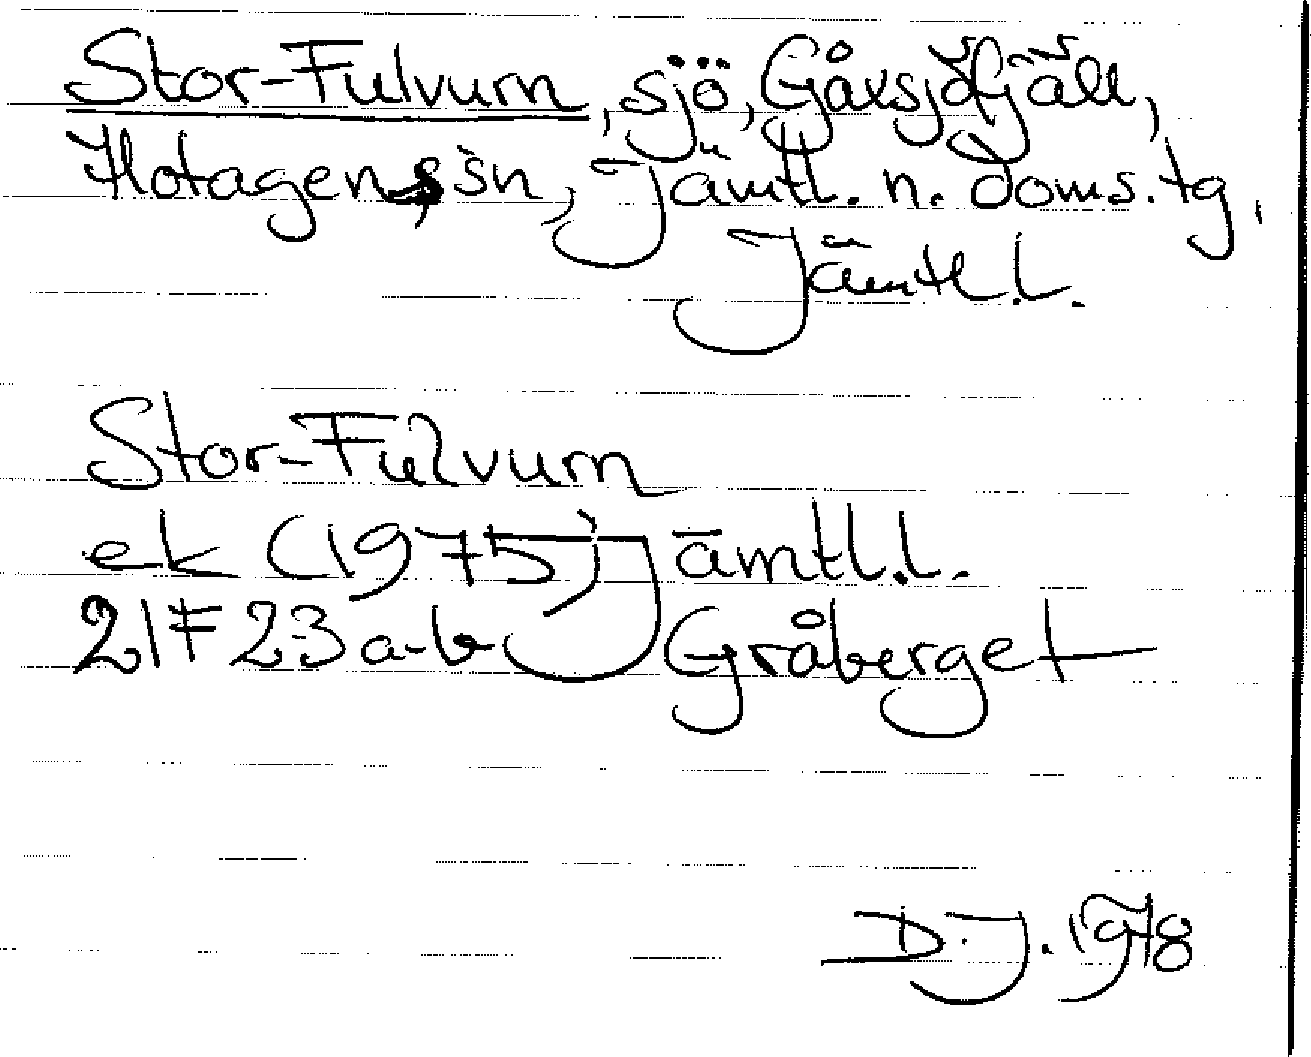 Stor-Fulvurn, sjö, Gåxsjöfjäll,
Hotagens sn, Jämtl. n. doms. tg,
Jämtl. l.
Stor-Fulvurn
ek (1975) Jämtl. l.
21F 23 a-b Gråberget
D. J. 1978